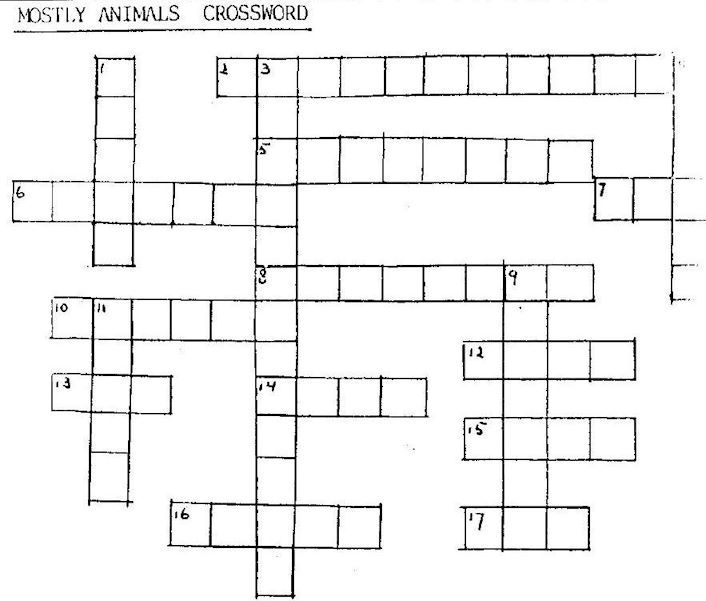 MOSTLY ANIMALS CROSSWORD
1 2 3
5
6 7
8 9
10 11
12
13 14
15
16 17